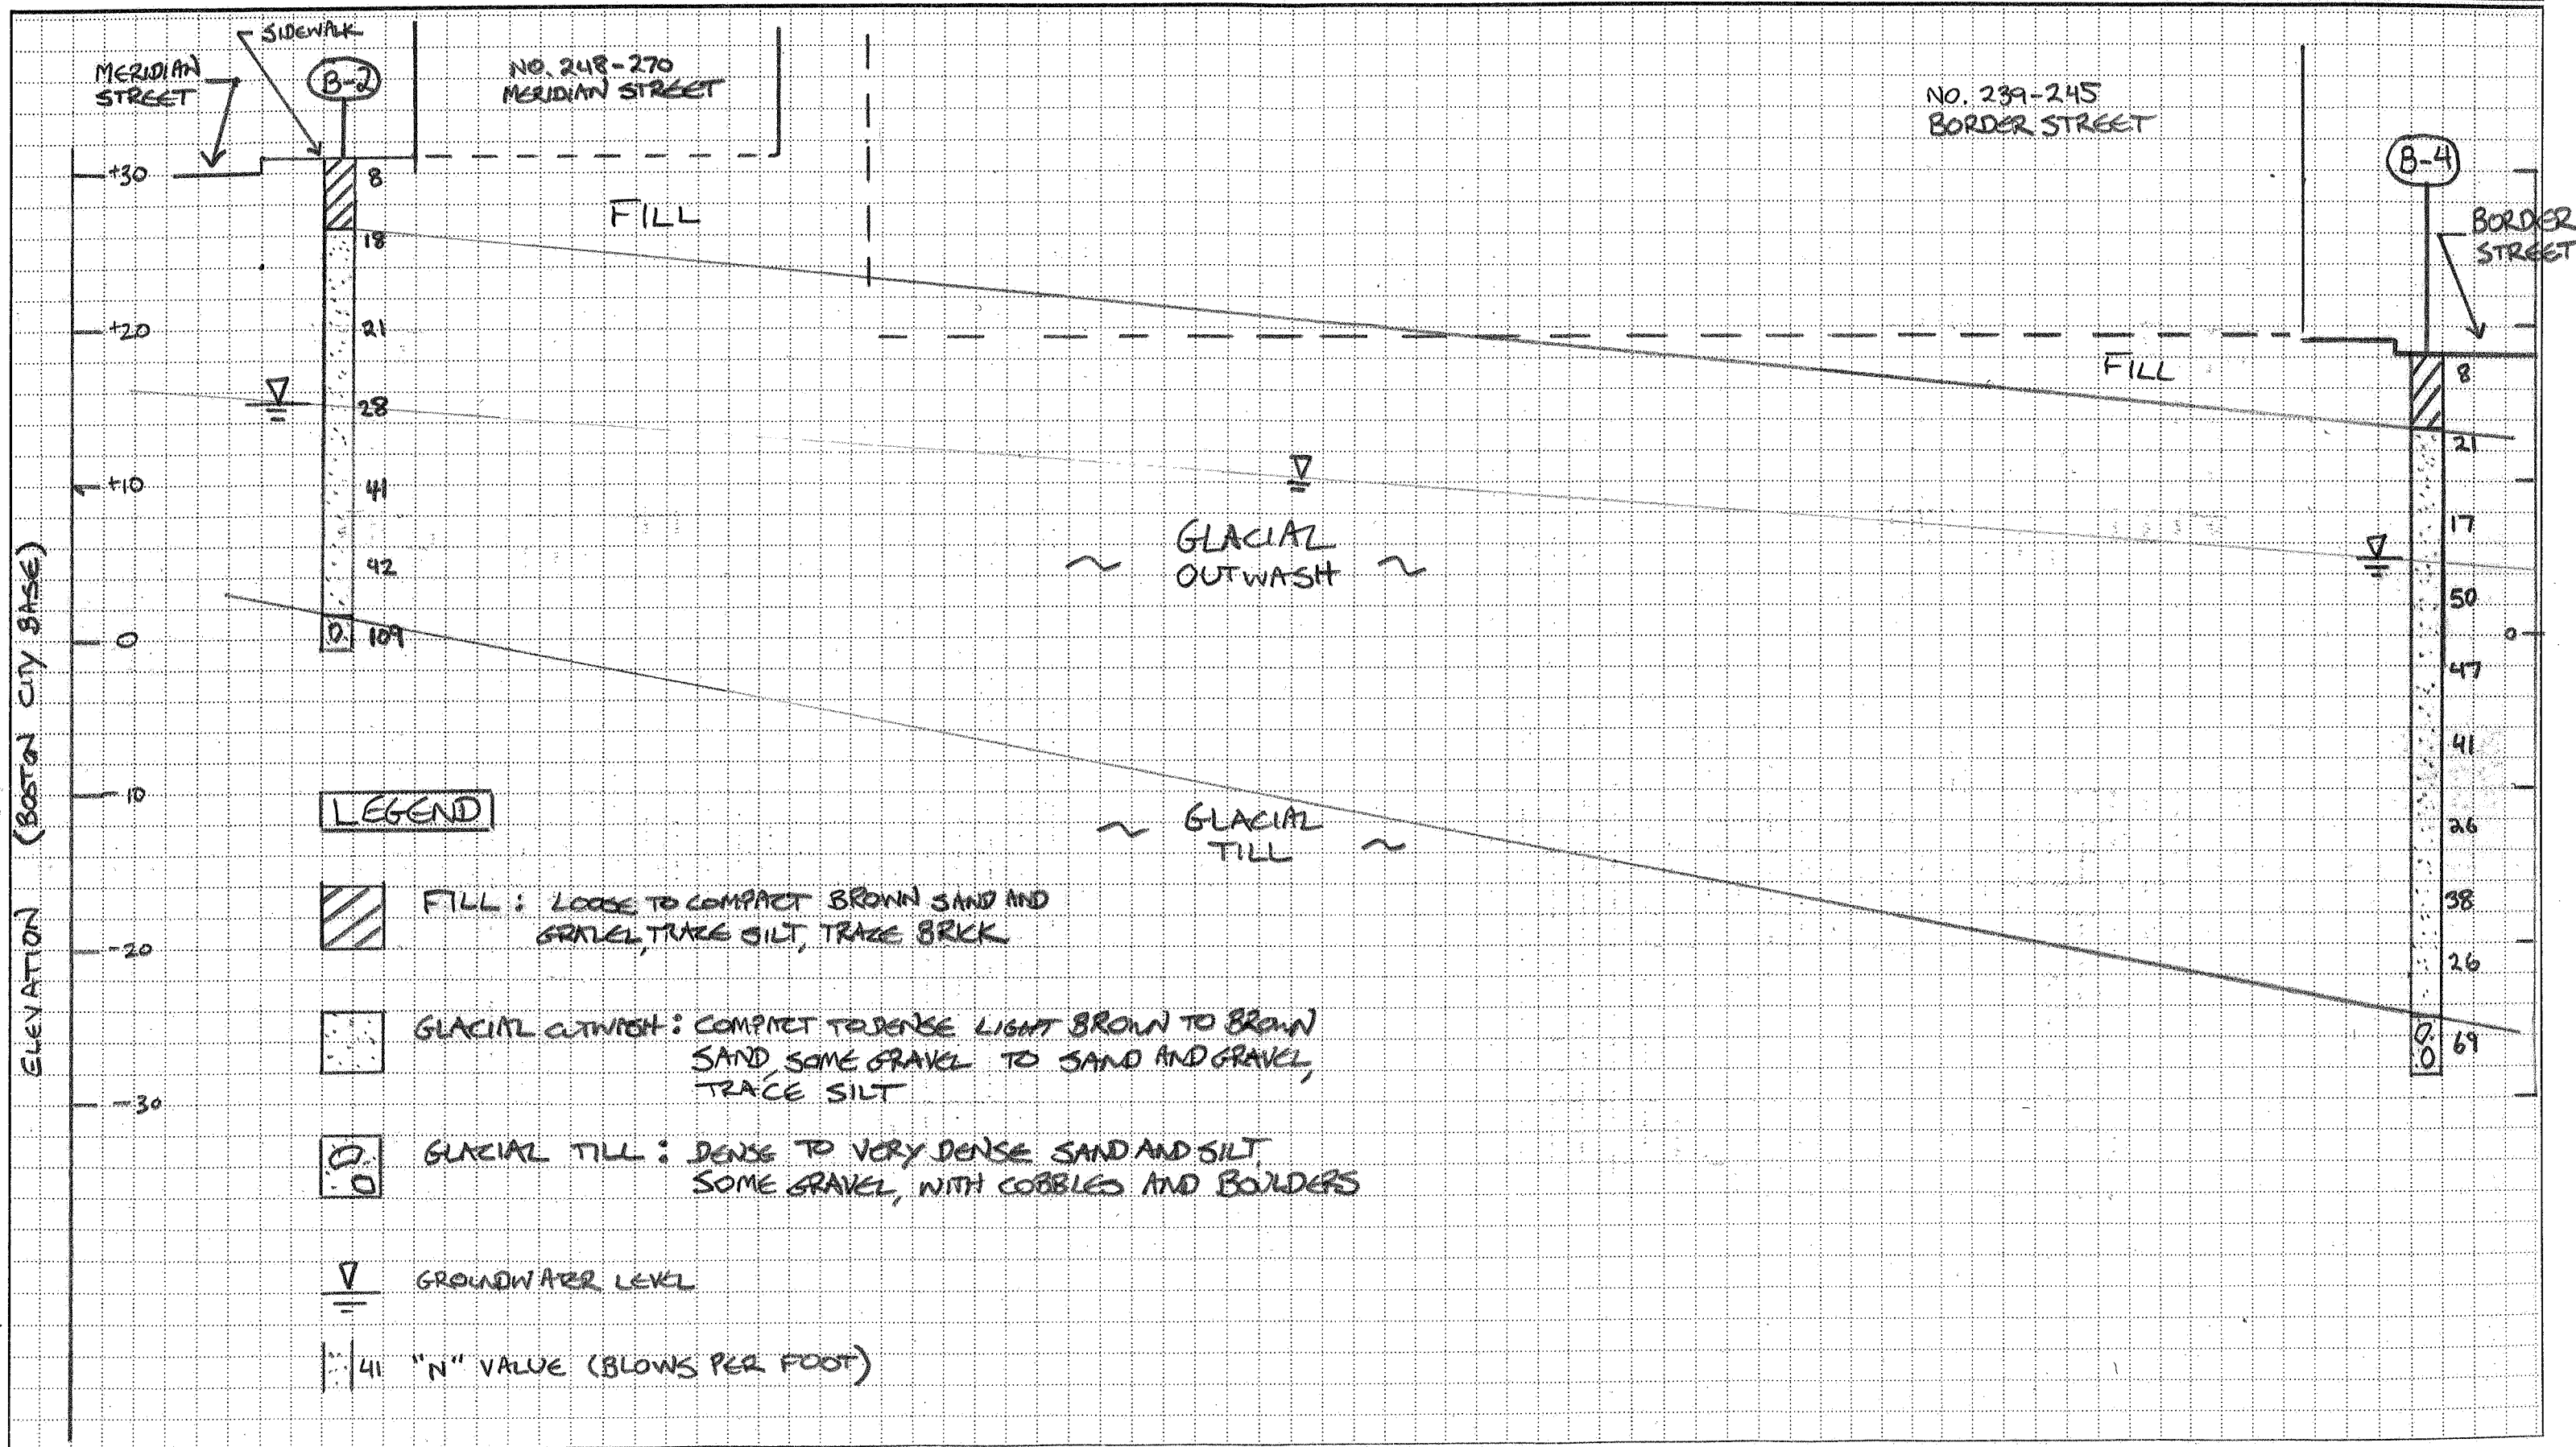 SIDEWALK
MERIDIAN
STREET
B-2
NO. 248-270
MERIDIAN STREET
NO. 239-245
BORDER STREET
B-4
BORDER
STREET
+30
+20
+10
0
-10
-20
-30
ELEVATION (BOSTON CITY BASE)
8
18
21
28
41
42
109
FILL
FILL
GLACIAL
OUTWASH
GLACIAL
TILL
8
21
17
50
47
41
26
38
26
69
0
LEGEND
FILL: LOOSE TO COMPACT BROWN SAND AND
GRAVEL, TRACE SILT, TRACE BRICK
GLACIAL OUTWASH: COMPACT TO DENSE LIGHT BROWN TO BROWN
SAND, SOME GRAVEL TO SAND AND GRAVEL,
TRACE SILT
GLACIAL TILL: DENSE TO VERY DENSE SAND AND SILT,
SOME GRAVEL, WITH COBBLES AND BOULDERS
GROUNDWATER LEVEL
41 "N" VALUE (BLOWS PER FOOT)